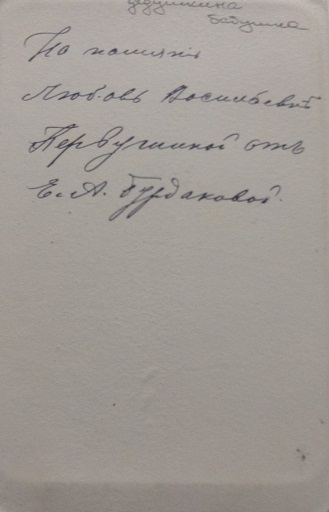 дедушкина
бабушка
На память
Любовь Васильевнѣ
Первушиной отъ
Е. А. Бурдаковой.